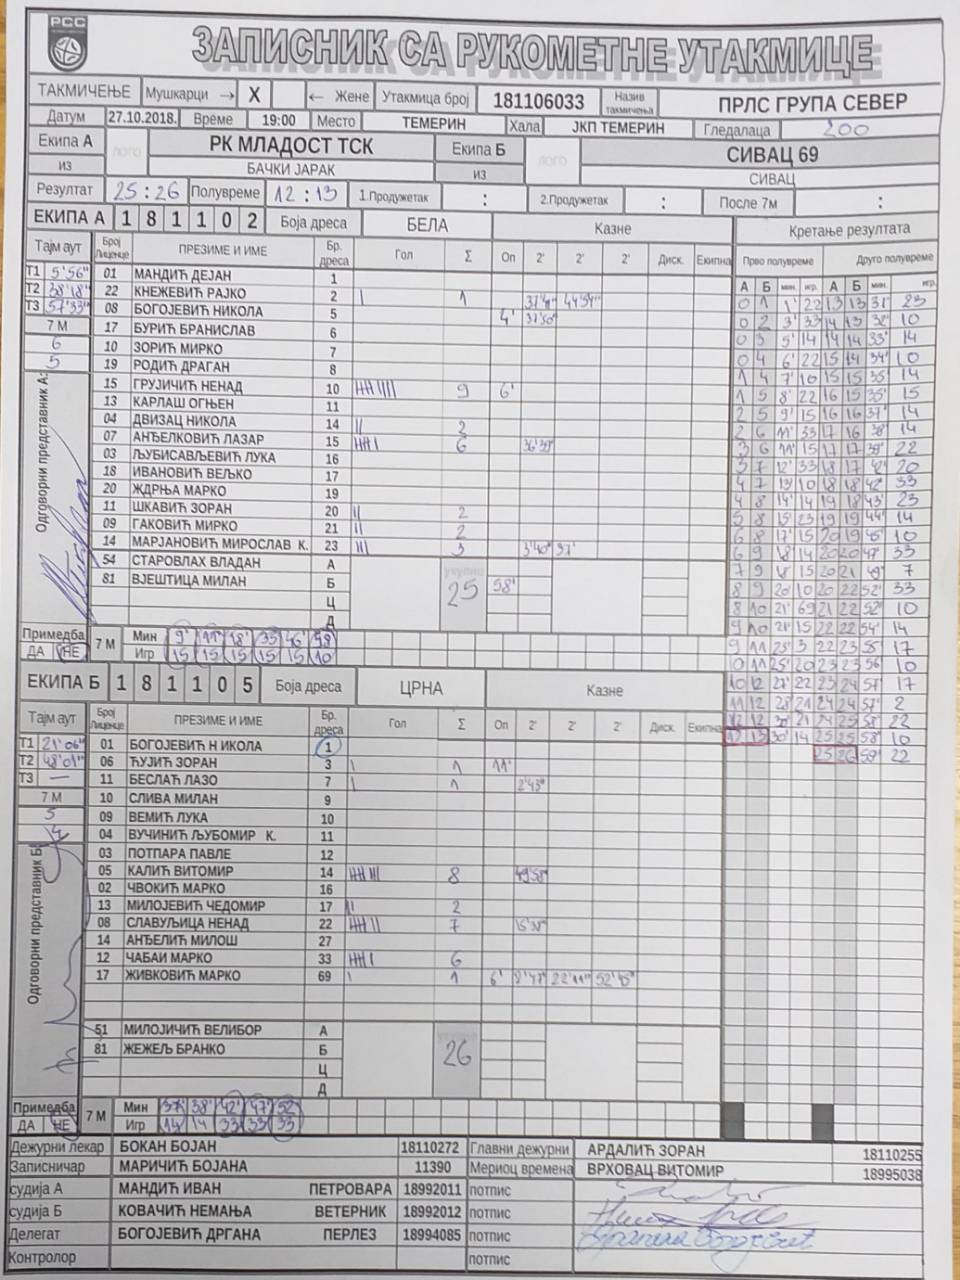 РСС
ЗАПИСНИК СА РУКОМЕТНЕ УТАКМИЦЕ
ТАКМИЧЕЊЕ Мушкарци → X ← Жене Утакмица број 181106033 Назив такмичења ПРЛС ГРУПА СЕВЕР
Датум 27.10.2018. Време 19:00 Место ТЕМЕРИН Хала ЈКП ТЕМЕРИН Гледалаца 200
Екипа А ЛОГО РК МЛАДОСТ ТСК Екипа Б ЛОГО СИВАЦ 69
из БАЧКИ ЈАРАК из СИВАЦ
Резултат 25:26 Полувреме 12:13 1.Продужетак : 2.Продужетак : После 7м :
ЕКИПА А 1 8 1 1 0 2 Боја дреса БЕЛА Казне Кретање резултата
Тајм аут Број Лиценце ПРЕЗИМЕ И ИМЕ Бр. дреса Гол Σ Оп 2' 2' 2' Диск. Екипна Прво полувреме Друго полувреме
А Б мин. игр. А Б мин. игр.
Т1 5'56" 01 МАНДИЋ ДЕЈАН 1
Т2 38'18" 22 КНЕЖЕВИЋ РАЈКО 2 I 1
Т3 57'33" 08 БОГОЈЕВИЋ НИКОЛА 5 4' 37'50"
7 М 17 БУРИЋ БРАНИСЛАВ 6
6 10 ЗОРИЋ МИРКО 7
5 19 РОДИЋ ДРАГАН 8
15 ГРУЈИЧИЋ НЕНАД 10 9 6'
13 КАРЛАШ ОГЊЕН 11
04 ДВИЗАЦ НИКОЛА 14 II 2
07 АНЂЕЛКОВИЋ ЛАЗАР 15 6 36'39"
03 ЉУБИСАВЉЕВИЋ ЛУКА 16
18 ИВАНОВИЋ ВЕЉКО 17
20 ЖДРЊА МАРКО 19
11 ШКАВИЋ ЗОРАН 20 II 2
09 ГАКОВИЋ МИРКО 21 II 2
14 МАРЈАНОВИЋ МИРОСЛАВ К. 23 III 3 3'40" 37'
54 СТАРОВЛАХ ВЛАДАН А укупно
81 ВЈЕШТИЦА МИЛАН Б 25 58'
Ц
Д
Одговорни представник А:
Примедба ДА НЕ 7 М Мин 9' 11' 18' 35' 46' 58'
Игр 15 15 15 15 15 10
0 1 1' 22 13 13 31' 23
0 2 3' 33 14 13 32' 10
0 3 5' 14 14 14 33' 14
0 4 6' 22 15 14 34' 10
1 4 7' 10 15 15 35' 14
1 5 8' 22 16 15 35' 15
2 5 9' 15 16 16 37' 14
2 6 11' 33 17 16 38' 14
3 6 11' 15 17 17 39' 22
3 7 12' 33 18 17 42' 20
4 7 13' 10 18 18 42' 33
4 8 14' 14 19 18 43' 23
5 8 15' 23 19 19 44' 14
6 8 17' 15 20 19 46' 10
6 9 18' 14 20 20 47' 33
7 9 18' 15 20 21 49' 7
8 9 20' 10 20 22 52' 33
8 10 21' 69 21 22 52' 10
9 10 21' 15 22 22 54' 14
9 11 25' 3 22 23 55' 17
10 11 25' 20 23 23 56' 10
10 12 27' 22 23 24 57' 17
11 12 28' 21 24 24 57' 2
12 12 30' 21 24 25 58' 22
12 13 30' 14 25 25 58' 10
25 26 59' 22
ЕКИПА Б 1 8 1 1 0 5 Боја дреса ЦРНА Казне
Тајм аут Број Лиценце ПРЕЗИМЕ И ИМЕ Бр. дреса Гол Σ Оп 2' 2' 2' Диск. Екипна
Т1 21'06" 01 БОГОЈЕВИЋ Н ИКОЛА 1
Т2 48'01" 06 ЋУЈИЋ ЗОРАН 3 I 1 11'
Т3 — 11 БЕСЛАЋ ЛАЗО 7 I 1 2'43"
7 М 10 СЛИВА МИЛАН 9
5 09 ВЕМИЋ ЛУКА 10
4 04 ВУЧИНИЋ ЉУБОМИР К. 11
03 ПОТПАРА ПАВЛЕ 12
05 КАЛИЋ ВИТОМИР 14 8 49'58"
02 ЧВОКИЋ МАРКО 16
13 МИЛОЈЕВИЋ ЧЕДОМИР 17 II 2
08 СЛАВУЉИЦА НЕНАД 22 7
14 АНЂЕЛИЋ МИЛОШ 27
12 ЧАБАИ МАРКО 33 6
17 ЖИВКОВИЋ МАРКО 69 I 1 6' 8'47" 22'11" 52'45"
51 МИЛОЈИЧИЋ ВЕЛИБОР А
81 ЖЕЖЕЉ БРАНКО Б 26
Ц
Д
Одговорни представник Б:
Примедба ДА НЕ 7 М Мин 37' 38' 42' 47' 52'
Игр 14 14 33 33 33
Дежурни лекар БОКАН БОЈАН 18110272 Главни дежурни АРДАЛИЋ ЗОРАН 18110255
Записничар МАРИЧИЋ БОЈАНА 11390 Мериоц времена ВРХОВАЦ ВИТОМИР 18995038
судија А МАНДИЋ ИВАН ПЕТРОВАРА 18992011 потпис
судија Б КОВАЧИЋ НЕМАЊА ВЕТЕРНИК 18992012 потпис
Делегат БОГОЈЕВИЋ ДРГАНА ПЕРЛЕЗ 18994085 потпис
Контролор потпис